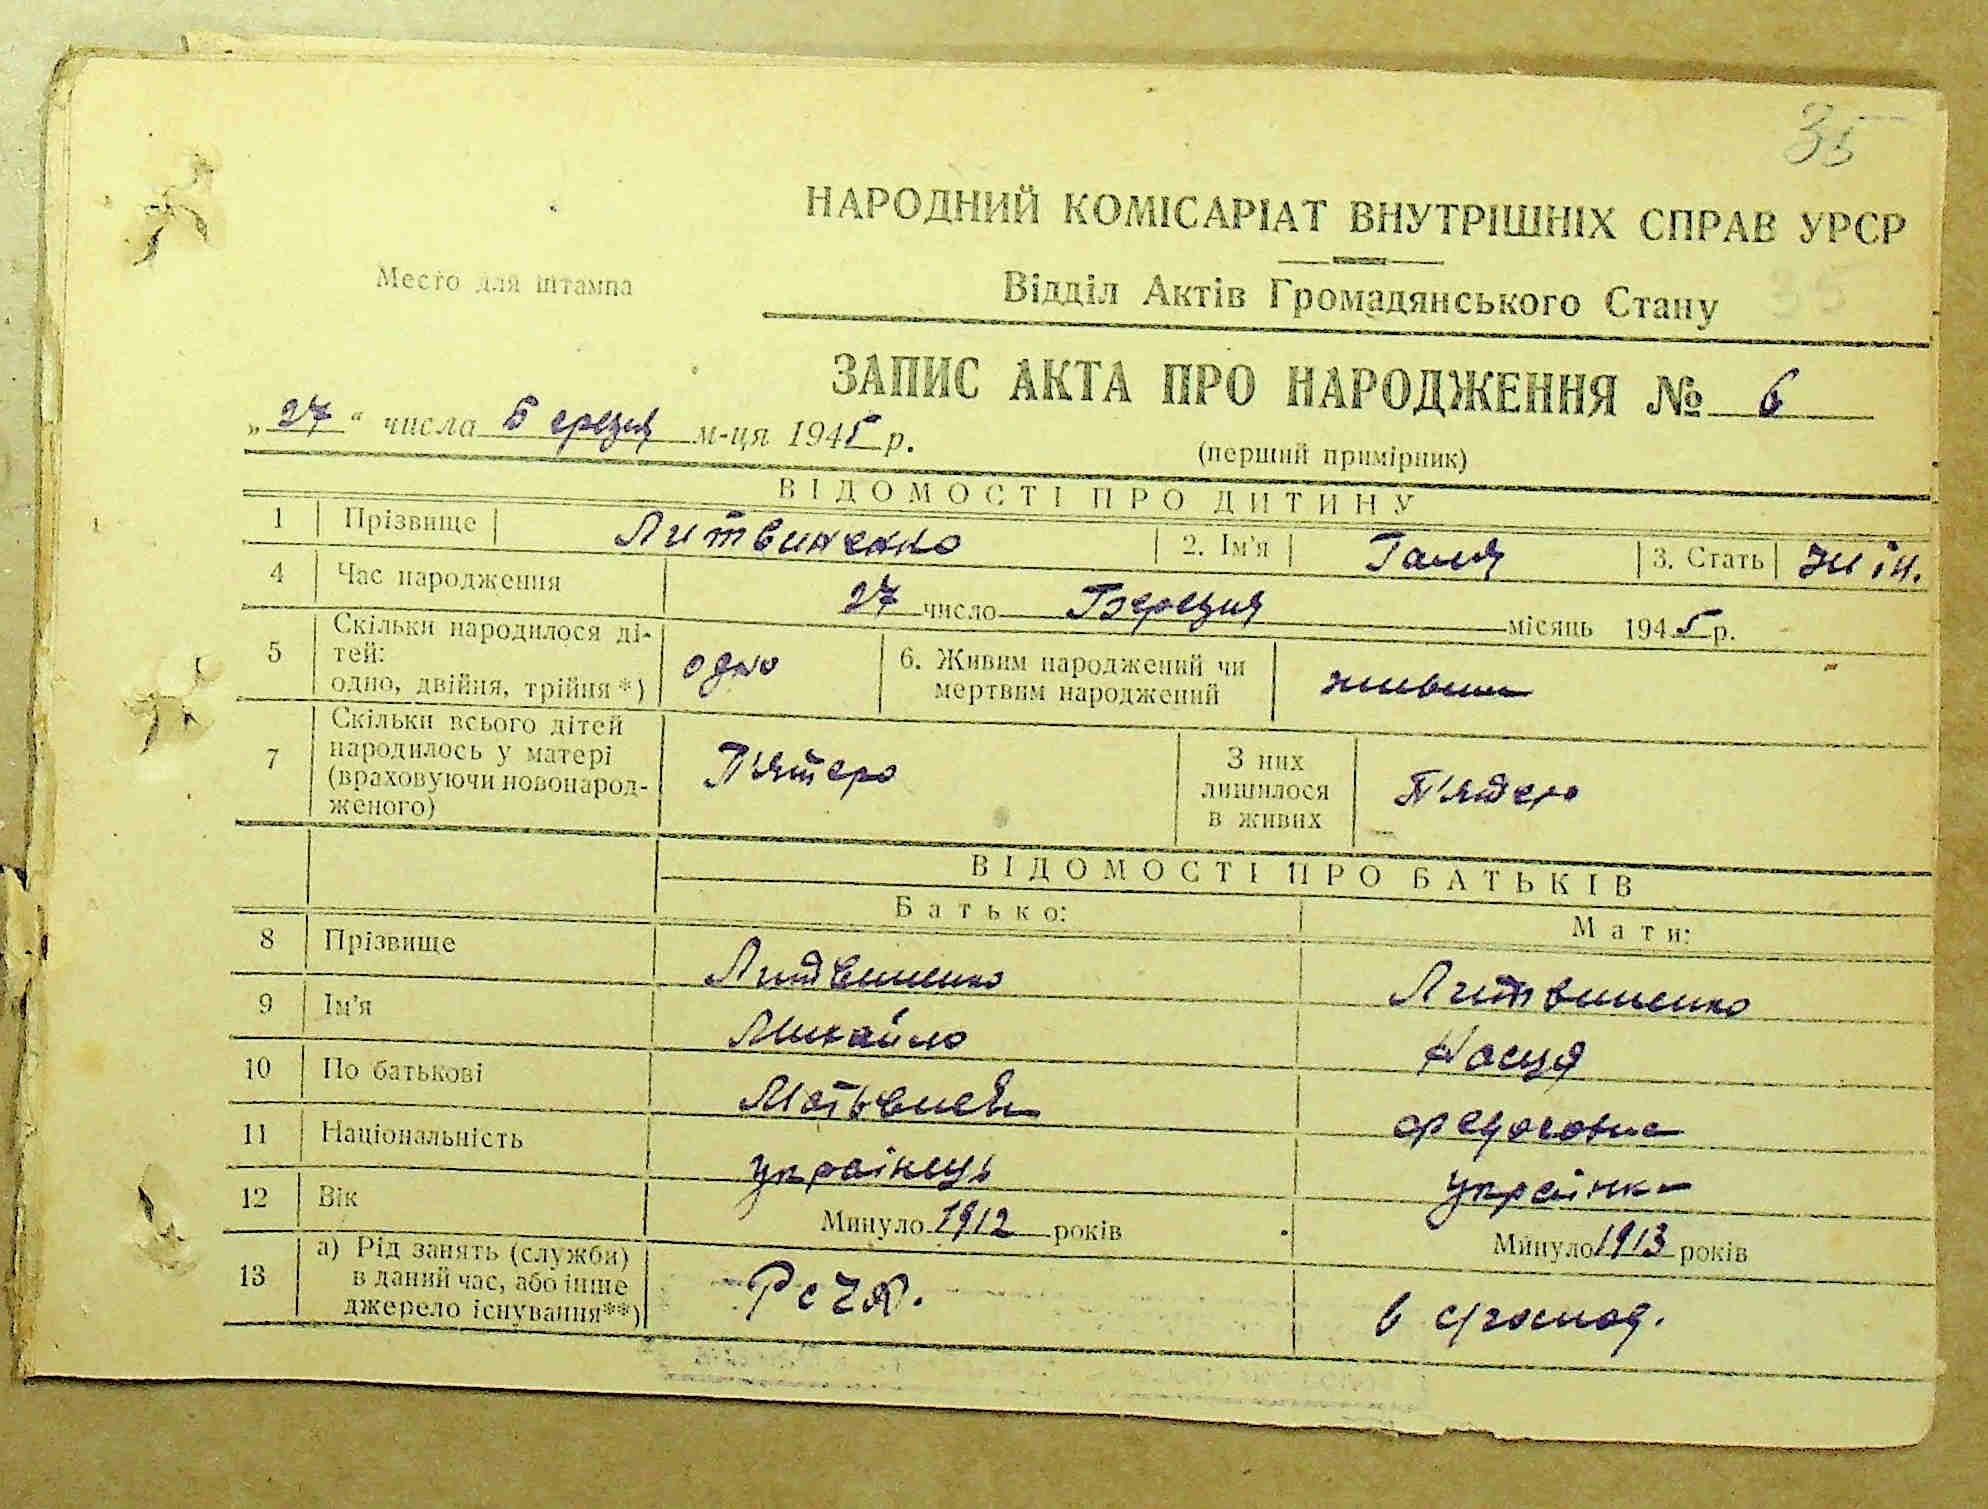 35
НАРОДНИЙ КОМІСАРІАТ ВНУТРІШНІХ СПРАВ УРСР
Место для штампа
Відділ Актів Громадянського Стану
ЗАПИС АКТА ПРО НАРОДЖЕННЯ № 6
„27“ числа Березня м-ця 1945 р.
(перший примірник)
ВІДОМОСТІ ПРО ДИТИНУ
1 Прізвище Литвиненко 2. Ім'я Галя 3. Стать жін.
4 Час народження 27 число Березня місяць 1945 р.
5 Скільки народилося ді-
тей:
одно, двійня, трійня*) одно 6. Живим народжений чи
мертвим народжений живим
7 Скільки всього дітей
народилось у матері
(враховуючи новонарод-
женого) П'ятеро З них
лишилося
в живих П'ятеро
ВІДОМОСТІ ПРО БАТЬКІВ
Батько: Мати:
8 Прізвище Литвиненко Литвиненко
9 Ім'я Михайло Настя
10 По батькові Федоровна
11 Національність українець українка
12 Вік Минуло 1912 років Минуло 1913 років
13 а) Рід занять (служби)
в даний час, або інше
джерело існування**) РСЧА. в